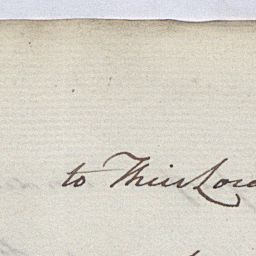 to Their Lord